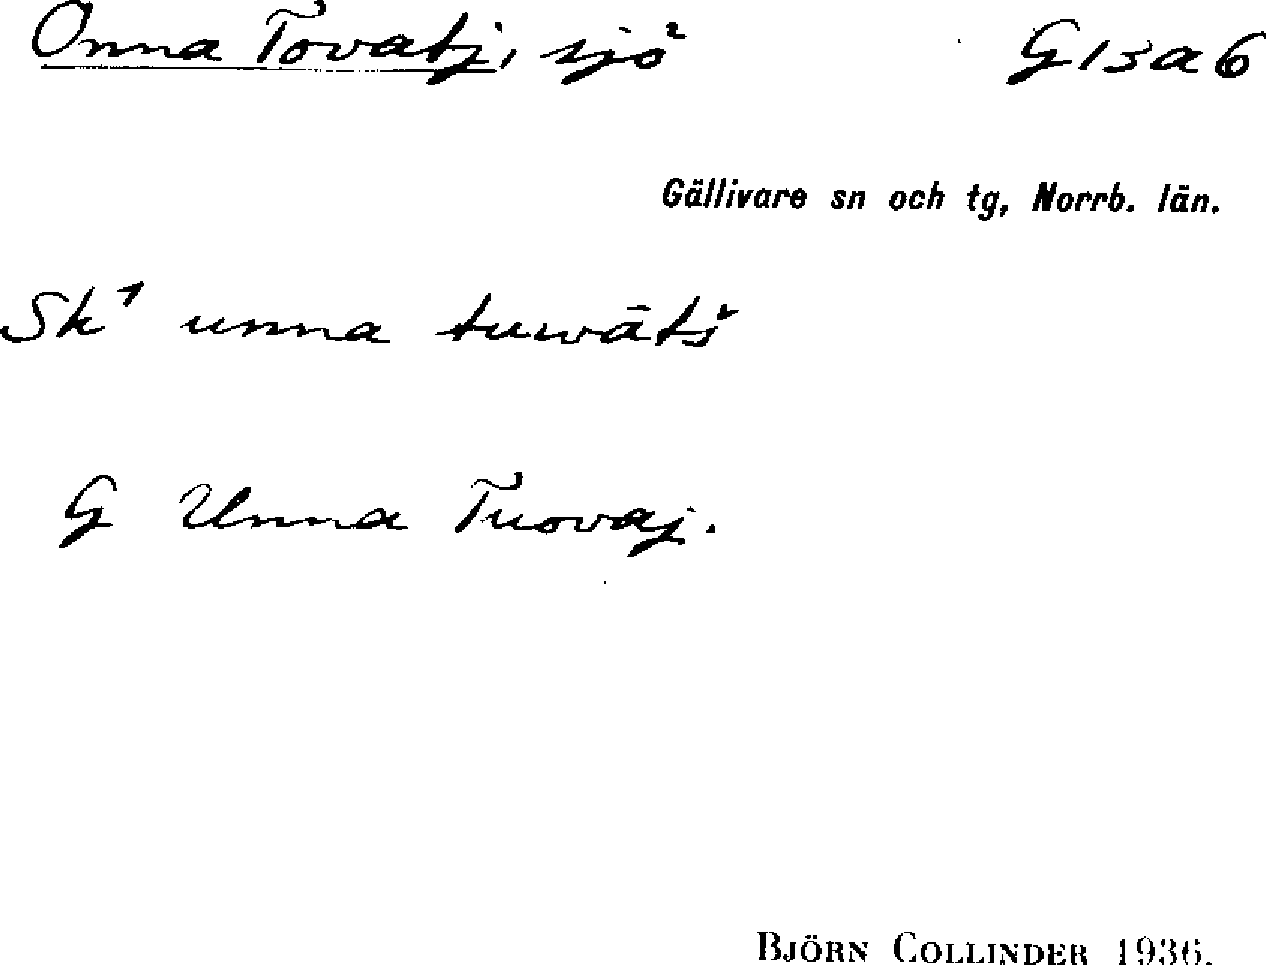 Onna Tovatj, sjö G13a6
Gällivare sn och tg, Norrb. län.
Sk¹ unna tuwātš
G Unna Tuovaj.
BJÖRN COLLINDER 1936.